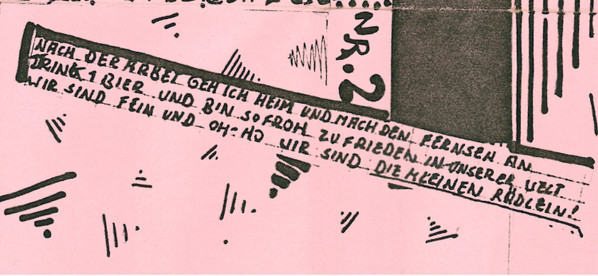 NR. 2
NACH DER ARBEI GEH ICH HEIM UND MACH DEN FERNSEH AN
DRINK 1 BIER UND BIN SO FROH ZUFRIEDEN IN UNSERER WELT
WIR SIND FEIN UND OH-HO WIR SIND DIE KLEINEN RÄDLEIN!